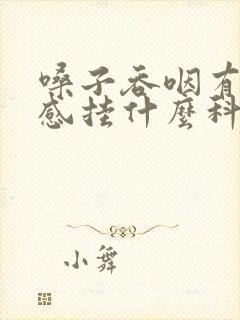 嗓子吞咽有
感挂什麼科
小舞